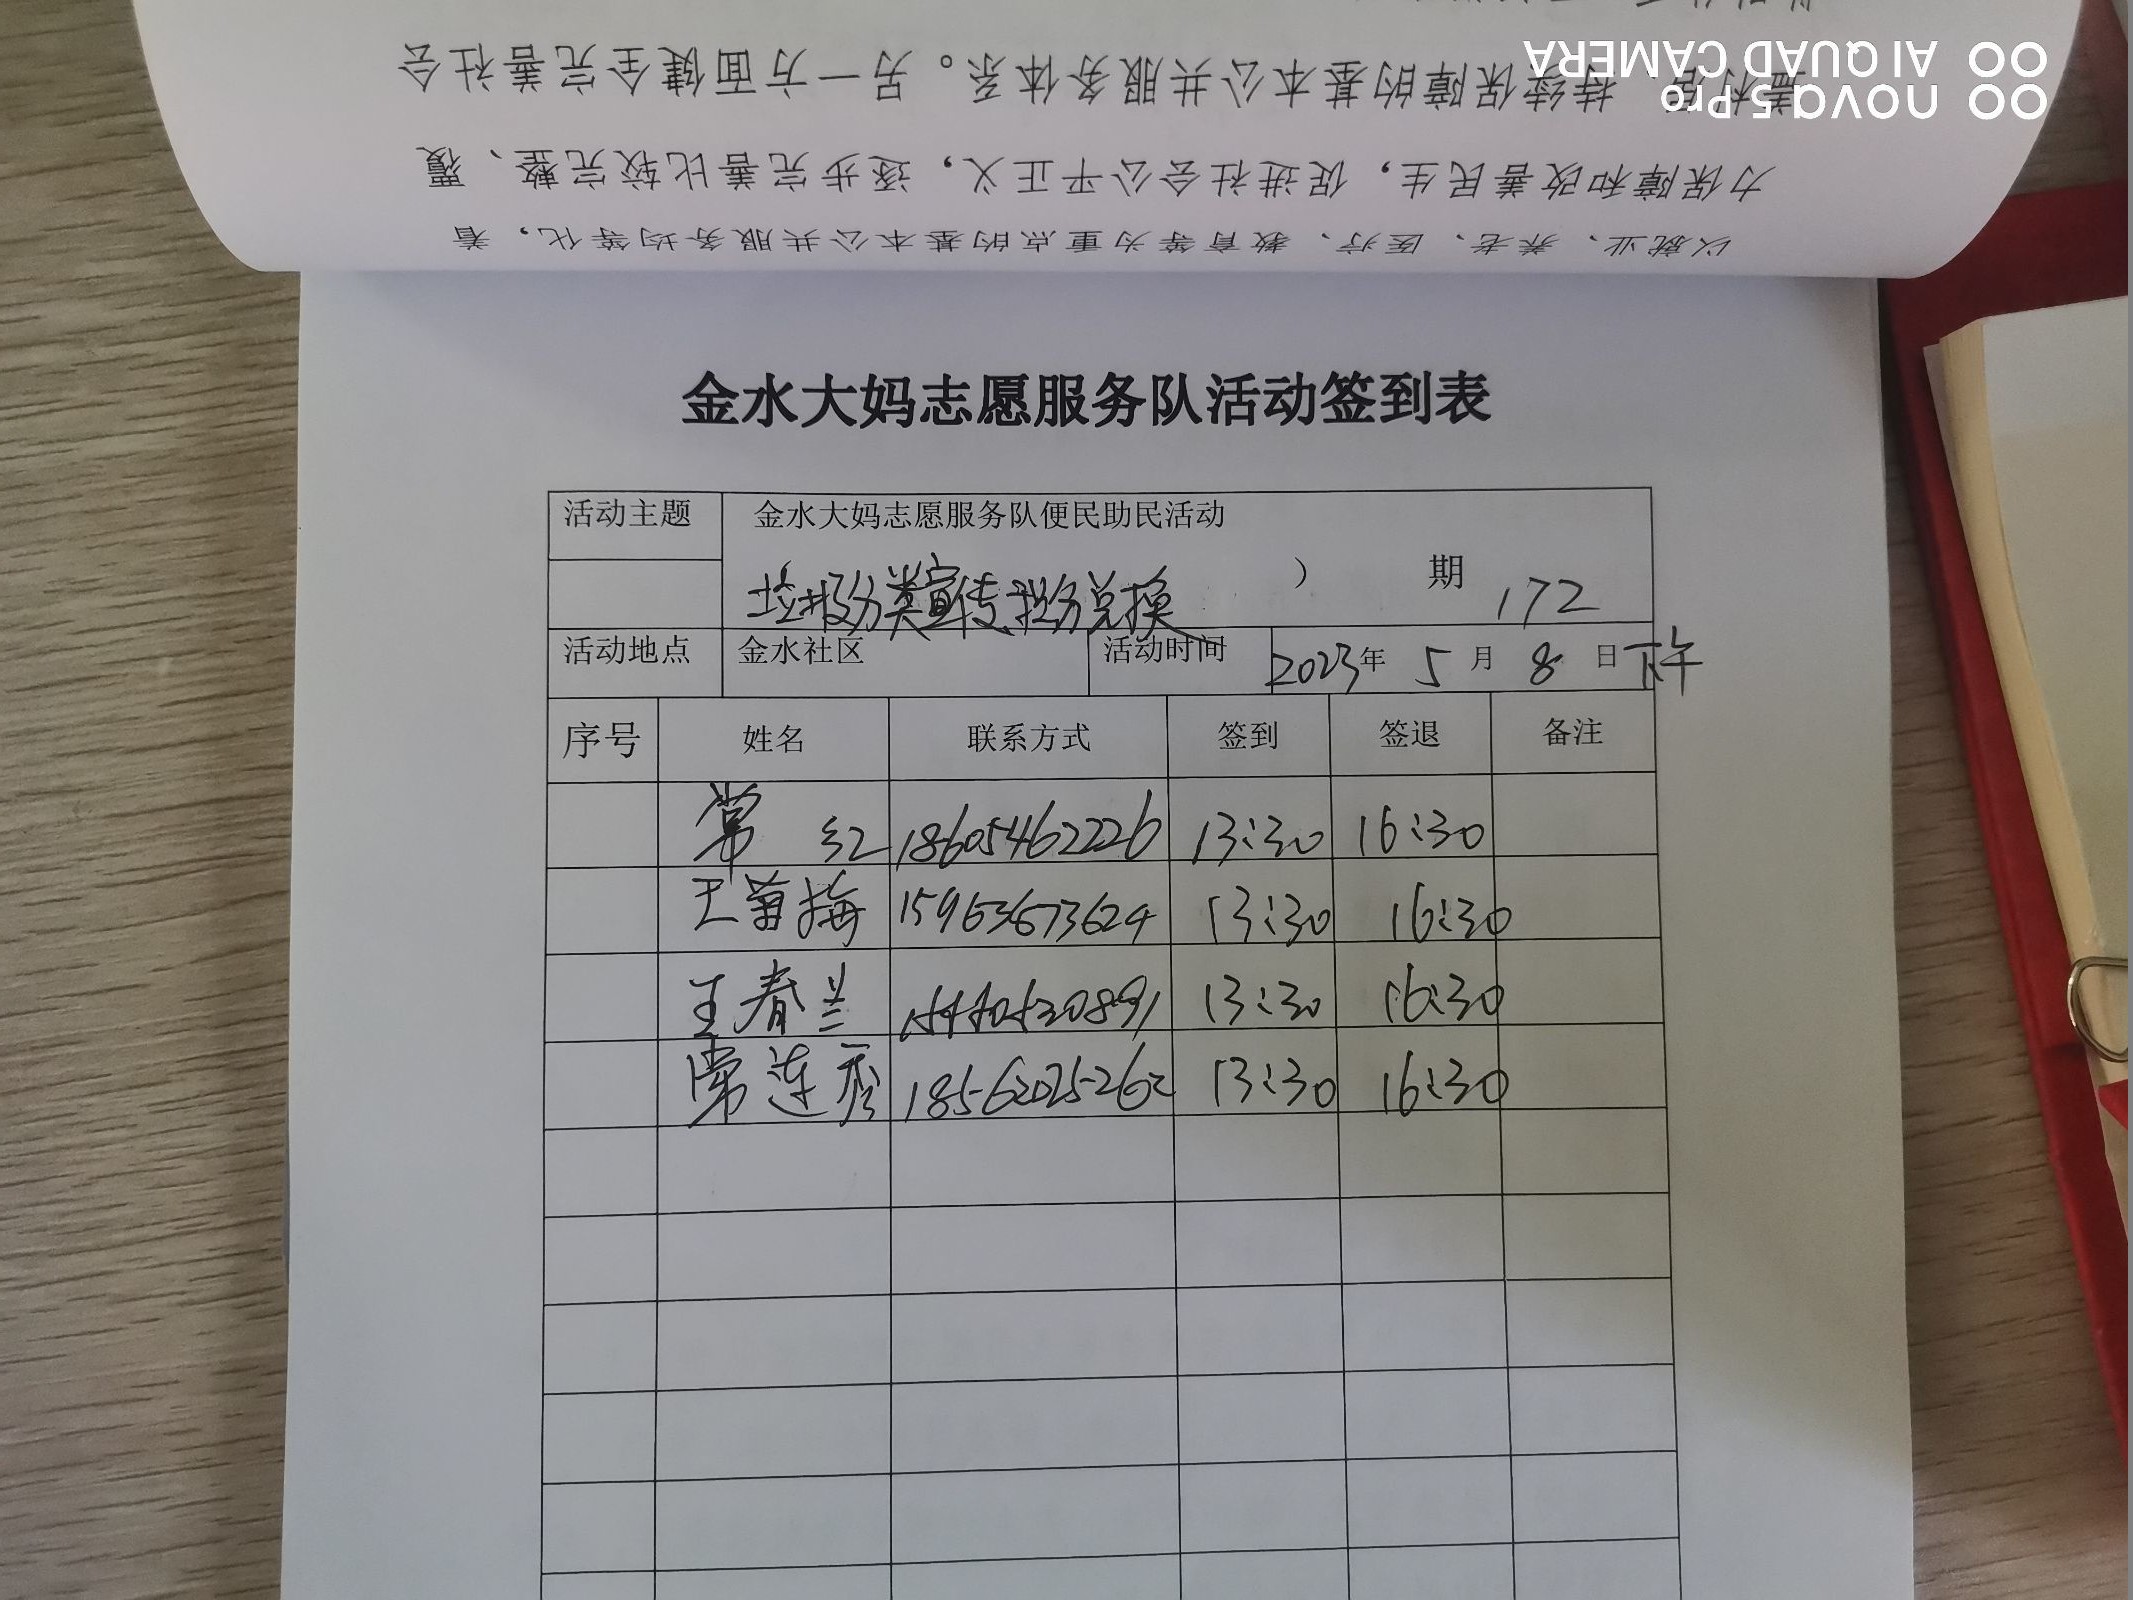 善社会
盖利民、持续保障的基本公共服务体系。另一方面健全完善社会
力保障和改善民生，促进社会公平正义，逐步完善比较完整、覆
以就业、养老、医疗、教育等为重点的基本公共服务均等化，着
nova 5 Pro
AI QUAD CAMERA
金水大妈志愿服务队活动签到表
活动主题 金水大妈志愿服务队便民助民活动
垃圾分类宣传积分兑换 ） 期 172
活动地点 金水社区 活动时间 2023年 5 月 8 日 下午
序号 姓名 联系方式 签到 签退 备注
常 红 18605462226 13:30 16:30
王菊梅 15963673624 13:30 16:30
王春兰 13:30 16:30
常连秀 18562025262 13:30 16:30